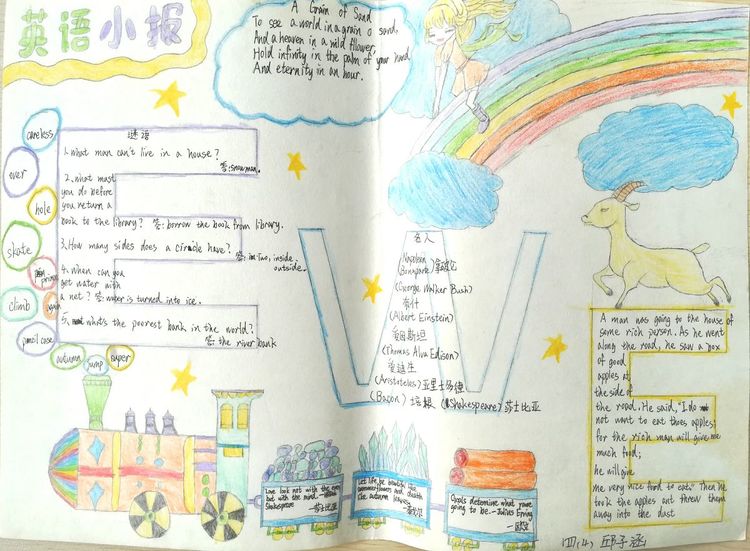 英语小报
A Grain of Sand
To see a world in a grain o sand,
And a heaven in a wild flower,
Hold infinity in the palm of your hand
And eternity in an hour.
careless
over
hole
skate
climb
again
pencil case
autumn
jump
super
谜语
1. what man can't live in a house?
答:snowman.
2. what must
you do before
you return a
book to the library? 答: borrow the book from library.
3. How many sides does a circle have?
答: Two, inside,
outside.
4. when can you
get water with
a net? 答: water is turned into ice.
5. what's the poorest bank in the world?
答: the river bank
名人
Napoleon
(Bonaparte)
(George Walker Bush)
布什
(Albert Einstein)
爱因斯坦
(Thomas Alva Edison)
爱迪生
(Aristoteles) 亚里士多德
(Bacon) 培根 (Shakespeare) 莎士比亚
A man was going to the house of
some rich person. As he went
along the road, he saw a box
of good
apples at
the side of
the road. He said, "I do
not want to eat thoes apples;
for the rich man will give me
much food;
he will give
me very nice food to eat." Then he
took the apples ant threw them
away into the dust
Love look not with the eyes
but with the mind
Shakespeare
莎士比亚
Let life be beautiful like
summer flowers and death
like autumn leaves
Goals determine what you're
going to be. -Julius Erving
四(4) 邱子涵